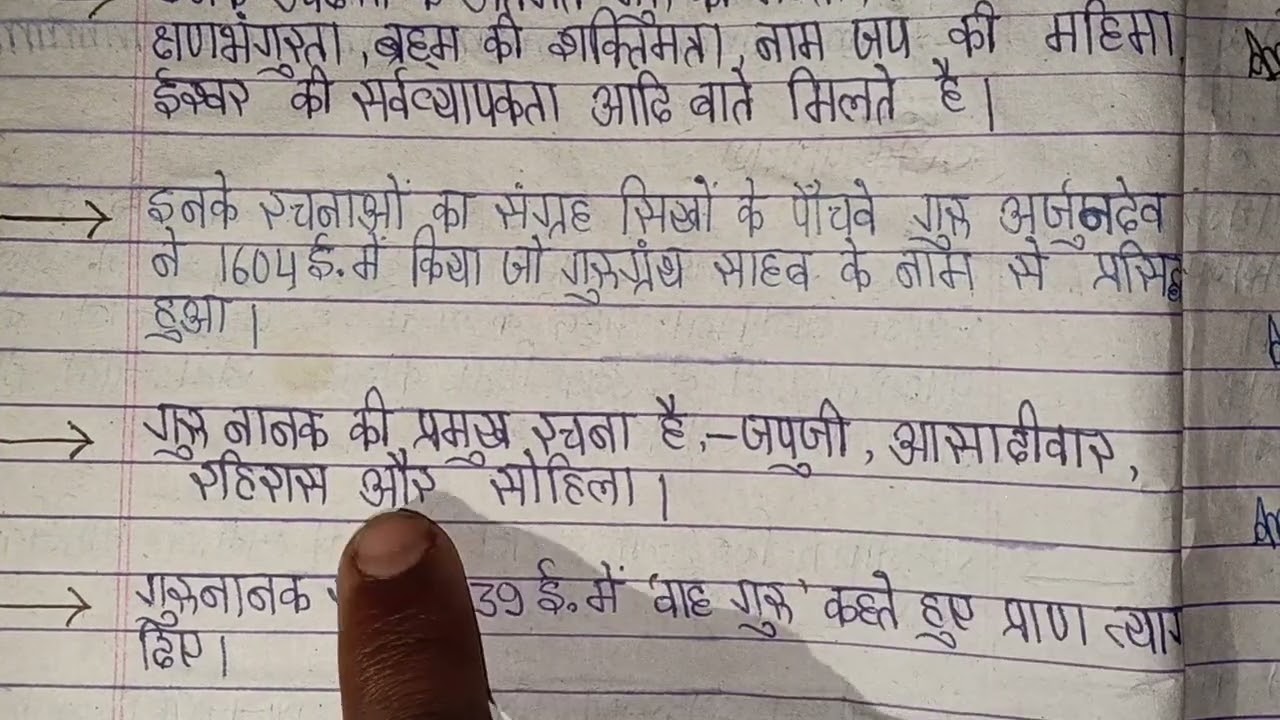 क्षणभंगुरता, ब्रह्म की शक्तिमता, नाम जप की महिमा
ईश्वर की सर्वव्यापकता आदि बाते मिलते है।
→ इनके रचनाओं का संग्रह सिखों के पाँचवे गुरु अर्जुनदेव
ने 1604 ई. में किया जो गुरुग्रंथ साहब के नाम से प्रसिद्ध
हुआ।
→ गुरु नानक की प्रमुख रचना है,- जपुजी, आसादीवार,
रहिरास और सोहिला।
→ गुरुनानक 39 ई. में 'वाह गुरु' कहते हुए प्राण त्याग
दिए।